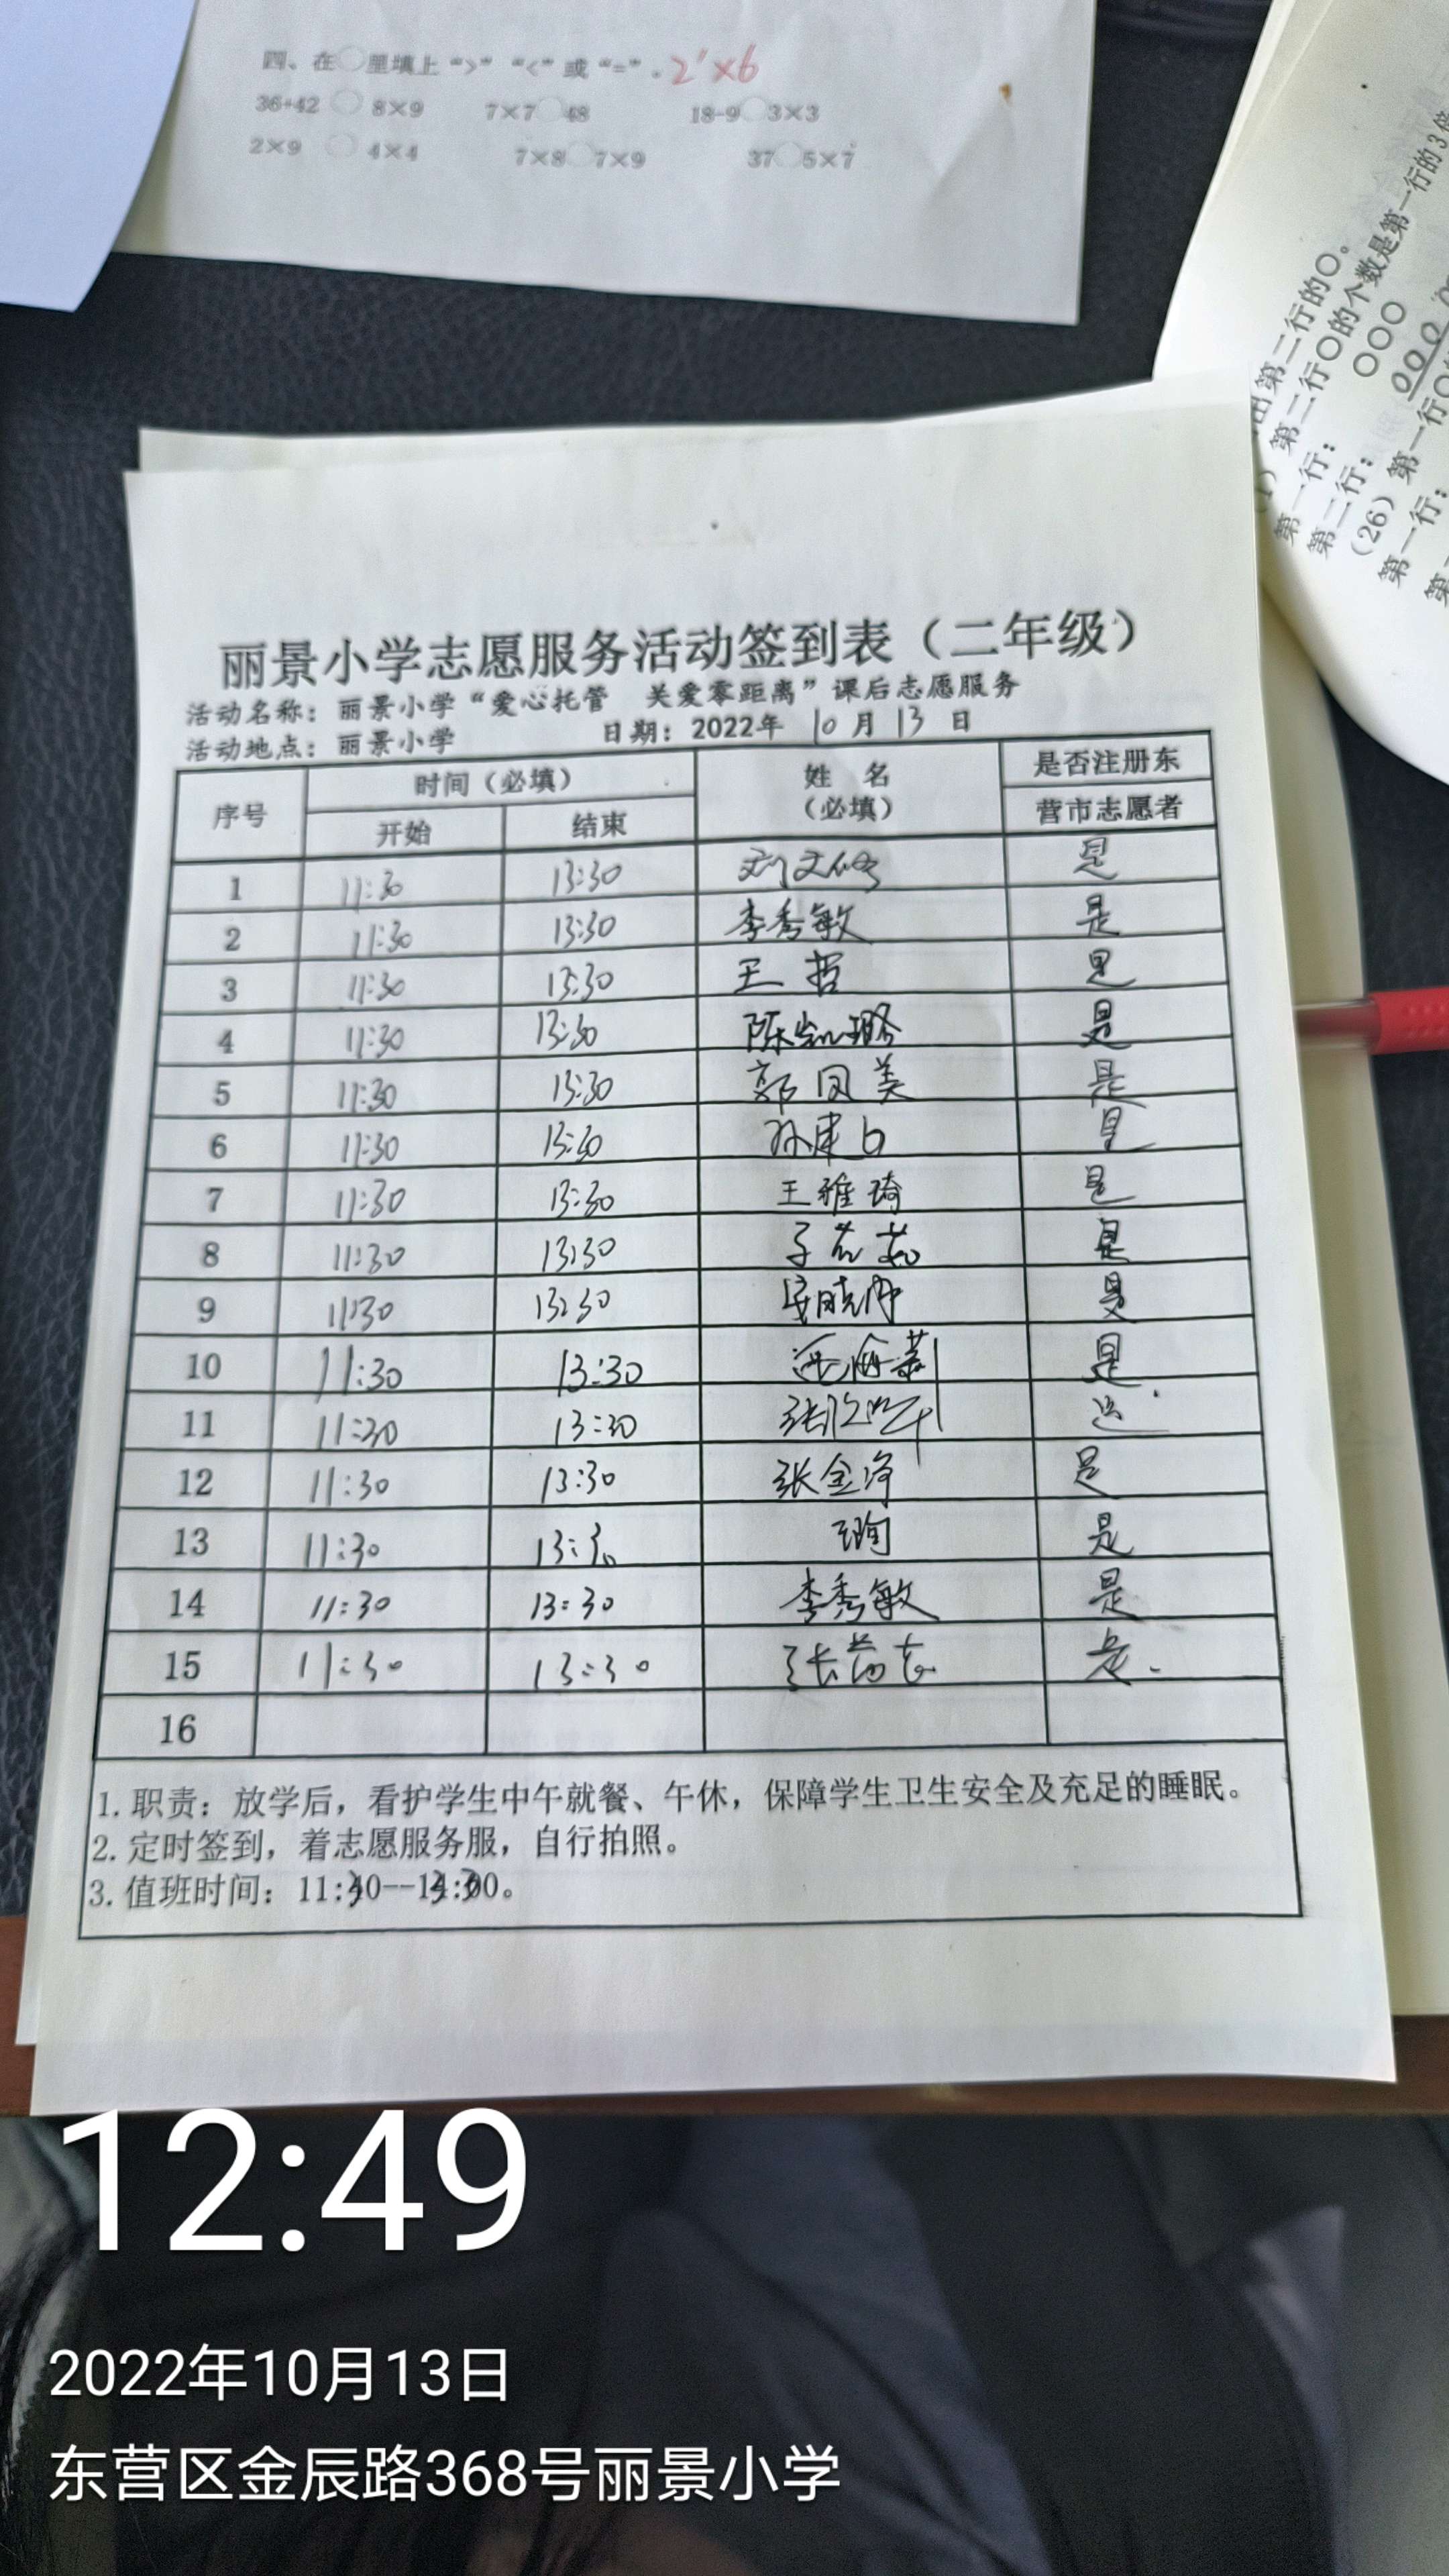 四、在○里填上“>”“<”或“=”。2'×6
36+42○8×9 7×7○48 18-9○3×3
2×9○4×4 7×8○7×9 37○5×7
出第二行的○。
(1) 第二行○的个数是第一行的3倍
第一行：○○○
第二行：000
(26) 第一行○
第一行：
丽景小学志愿服务活动签到表（二年级）
活动名称：丽景小学“爱心托管 关爱零距离”课后志愿服务
活动地点：丽景小学 日期：2022年10月13日
序号 时间（必填） 姓 名（必填） 是否注册东营市志愿者
开始 结束
1 11:30 13:30 是
2 11:30 13:30 李秀敏 是
3 11:30 13:30 王哲 是
4 11:30 13:30 陈凯璐 是
5 11:30 13:30 郭凤美 是
6 11:30 13:30 是
7 11:30 13:30 王雅琦 是
8 11:30 13:30 是
9 11:30 13:30 是
10 11:30 13:30 是
11 11:30 13:30 是
12 11:30 13:30 是
13 11:30 13:30 是
14 11:30 13:30 李秀敏 是
15 11:30 13:30 是
16
1.职责：放学后，看护学生中午就餐、午休，保障学生卫生安全及充足的睡眠。
2.定时签到，着志愿服务服，自行拍照。
3.值班时间：11:30--13:30。
12:49
2022年10月13日
东营区金辰路368号丽景小学